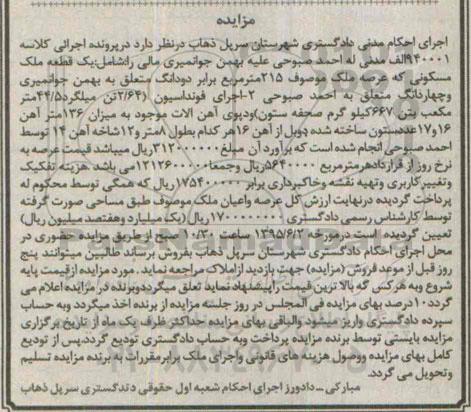 مزایده
اجرای احکام مدنی دادگستری شهرستان سرپل ذهاب درنظر دارد درپرونده اجرائی کلاسه
۹۴۰۰۰۱الف مدنی له احمد صبوحی علیه بهمن جوانمیری مالی راشامل:یک قطعه ملک
مسکونی که عرصه ملک موصوف ۲۱۵مترمربع برابر دودانگ متعلق به بهمن جوانمیری
وچهاردانگ متعلق به احمد صبوحی ۲-اجرای فونداسیون (۲/۶۴تن میلگرد۴۴/۵متر
مکعب بتن ۶۶۷کیلو گرم صفحه ستون)ودپوی آهن الات موجود به میزان ۱۳۶متر آهن
۱۶و۱۷عددستون ساخته شده دوبل از آهن ۱۶هر کدام بطول ۸متر و۱۲شاخه آهن ۱۴ توسط
احمد صبوحی انجام شده است که برآورد آن مبلغ۳۱۲۰۰۰۰۰۰ریال میباشد قیمت عرصه به
نرخ روز از قراردادهرمترمربع ۵۶۴۰۰۰۰ریال وجمعا۱۲۱۲۶۰۰۰۰۰می باشد .هزینه تفکیک
وتغییرکاربری وتهیه نقشه وخاکبرداری برابر ۱۷۵۴۰۰۰۰۰ریال که همگی توسط محکوم له
پرداخت گردیده درنهایت ارزش کل عرصه واعیان ملک موصوف طبق مساحی صورت گرفته
توسط کارشناس رسمی دادگستری ۱۷۰۰۰۰۰۰۰۰ریال(یک میلیارد وهفتصد میلیون ریال)
تعیین گردیده است درمورخه ۱۳۹۵/۶/۲ ساعت ۱۰/۳۰ صبح از طریق مزایده حضوری در
محل اجرای احکام دادگستری شهرستان سرپل ذهاب بفروش برساند طالبین میتوانند پنج
روز قبل از موعد فروش (مزایده) جهت بازدید ازاملاک مراجعه نماید . مورد مزایده ازقیمت پایه
شروع وبه هرکس که بالا ترین قیمت راپیشنهاد نماید تعلق میگرددوبرنده در مزایده اعلام می
گردد۱۰درصد بهای مزایده فی المجلس در روز جلسه مزایده از برنده اخذ میگردد وبه حساب
سپرده دادگستری واریز میشود والباقی بهای مزایده حداکثر ظرف یک ماه از تاریخ برگزاری
مزایده بایستی توسط برنده مزایده پرداخت وبه حساب دادگستری تودیع گردد.پس از تودیع
کامل بهای مزایده ووصول هزینه های قانونی واجرای ملک برابرمقررات به برنده مزایده تسلیم
وتحویل می گردد.
مبارکی-دادورز اجرای احکام شعبه اول حقوقی دادگستری سرپل ذهاب